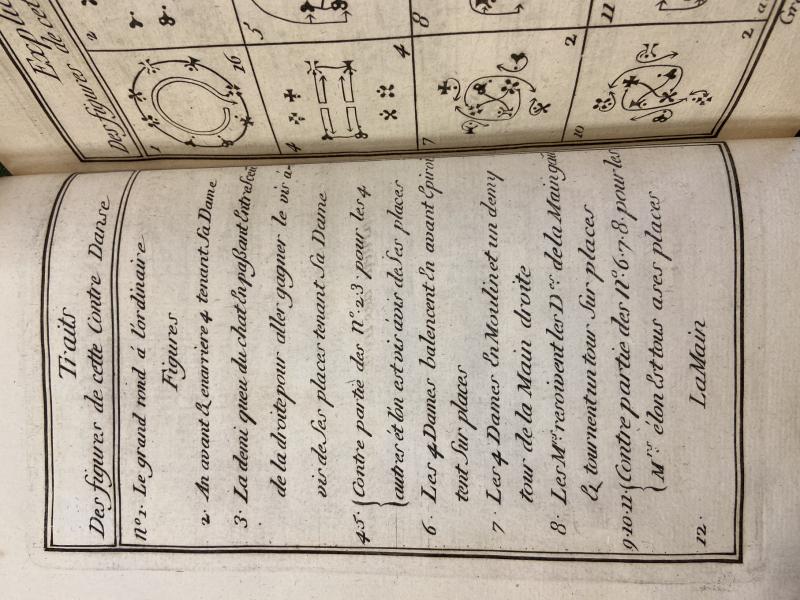 Traits
Des figures de cette Contre Danse
nº 1. Le grand rond á l'ordinaire
Figures
2. An avant & enarriere 4 tenant Sa Dame
3. La demi queu du chat En paßant Entre
de la droite pour aller gagner le vis a-
vis de Ses places tenant Sa Dame
4.5. Contre partie des nº. 2.3. pour les 4
autres ét l'on est vis avis de Ses places
6. Les 4 Dames balencent En avant & pirou
tent Sur places
7. Les 4 Dames En Moulin et un demy
tour de la Main droite
8. Les Mrs. resoivent les Dres. de la Main gau
& tournent un tour Sur places
9.10.11. Contre partie des nº. 6.7.8. pour les
Mrs. é lon Est tous a ses places
12. La Main
Expl
Des figures de ce
1
16
2
4
4
5
7
2
8
10
2
11